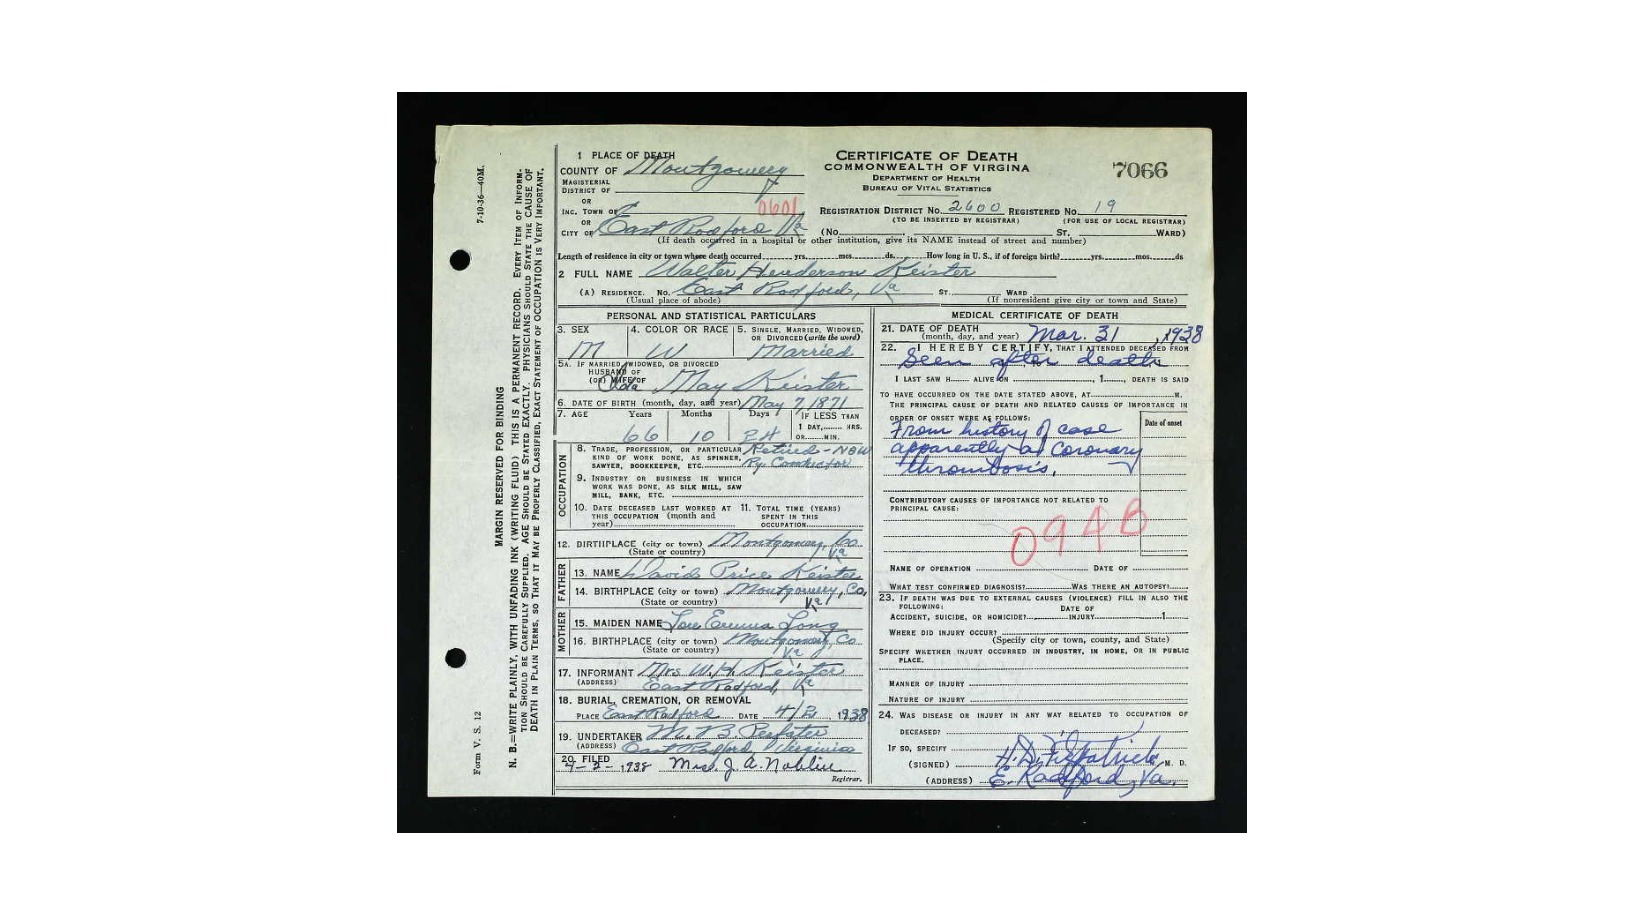 7-10-36—40M.
MARGIN RESERVED FOR BINDING
N. B.—WRITE PLAINLY, WITH UNFADING INK (WRITING FLUID) THIS IS A PERMANENT RECORD. EVERY ITEM OF INFORM-
TION SHOULD BE CAREFULLY SUPPLIED. AGE SHOULD BE STATED EXACTLY. PHYSICIANS SHOULD STATE THE CAUSE OF
DEATH IN PLAIN TERMS, SO THAT IT MAY BE PROPERLY CLASSIFIED. EXACT STATEMENT OF OCCUPATION IS VERY IMPORTANT.
Form V. S. 12
CERTIFICATE OF DEATH
COMMONWEALTH OF VIRGINIA
DEPARTMENT OF HEALTH
BUREAU OF VITAL STATISTICS
7066
1 PLACE OF DEATH
COUNTY OF Montgomery
MAGISTERIAL
DISTRICT OF
OR
INC. TOWN OF 0601
OR
CITY OF East Radford Va
REGISTRATION DISTRICT NO. 2600 REGISTERED NO. 19
(TO BE INSERTED BY REGISTRAR) (FOR USE OF LOCAL REGISTRAR)
(No. ST. WARD)
(If death occurred in a hospital or other institution, give its NAME instead of street and number)
Length of residence in city or town where death occurred yrs. mos. ds. How long in U. S., if of foreign birth? yrs. mos. ds
2 FULL NAME Walter Henderson Keister
(A) RESIDENCE. No. East Radford, Va ST. WARD
(Usual place of abode) (If nonresident give city or town and State)
PERSONAL AND STATISTICAL PARTICULARS
3. SEX 4. COLOR OR RACE 5. SINGLE, MARRIED, WIDOWED,
OR DIVORCED (write the word)
M W Married
5A. IF MARRIED, WIDOWED, OR DIVORCED
HUSBAND OF
(OR) WIFE OF May Keister
6. DATE OF BIRTH (month, day, and year) May 7, 1871
7. AGE Years Months Days IF LESS THAN
1 DAY, HRS.
66 10 24 OR MIN.
OCCUPATION
8. TRADE, PROFESSION, OR PARTICULAR Retired - N&W
KIND OF WORK DONE, AS SPINNER, Ry. Conductor
SAWYER, BOOKKEEPER, ETC.
9. INDUSTRY OR BUSINESS IN WHICH
WORK WAS DONE, AS SILK MILL, SAW
MILL, BANK, ETC.
10. DATE DECEASED LAST WORKED AT 11. TOTAL TIME (YEARS)
THIS OCCUPATION (month and SPENT IN THIS
year) OCCUPATION
12. BIRTHPLACE (city or town) Montgomery, Co
(State or country) Va
FATHER
13. NAME David Price Keister
14. BIRTHPLACE (city or town) Montgomery, Co,
(State or country) Va
MOTHER
15. MAIDEN NAME Emma Long
16. BIRTHPLACE (city or town) Montgomery, Co
(State or country) Va
17. INFORMANT Mrs W. H. Keister
(ADDRESS) East Radford, Va
18. BURIAL, CREMATION, OR REMOVAL
PLACE East Radford DATE 4/2, 1938
19. UNDERTAKER M. B.
(ADDRESS) East Radford, Virginia
20. FILED
4-2-, 1938 Mrs. J. A. Noblin
Registrar.
MEDICAL CERTIFICATE OF DEATH
21. DATE OF DEATH
(month, day, and year) Mar. 31, 1938
22. I HEREBY CERTIFY, THAT I ATTENDED DECEASED FROM
Seen after death
I LAST SAW H ALIVE ON , 1 , DEATH IS SAID
TO HAVE OCCURRED ON THE DATE STATED ABOVE, AT M.
THE PRINCIPAL CAUSE OF DEATH AND RELATED CAUSES OF IMPORTANCE IN
ORDER OF ONSET WERE AS FOLLOWS:
Date of onset
From history of case
apparently a Coronary
thrombosis.
CONTRIBUTORY CAUSES OF IMPORTANCE NOT RELATED TO
PRINCIPAL CAUSE:
094B
NAME OF OPERATION DATE OF
WHAT TEST CONFIRMED DIAGNOSIS? WAS THERE AN AUTOPSY?
23. IF DEATH WAS DUE TO EXTERNAL CAUSES (VIOLENCE) FILL IN ALSO THE
FOLLOWING: DATE OF
ACCIDENT, SUICIDE, OR HOMICIDE? INJURY 1
WHERE DID INJURY OCCUR?
(Specify city or town, county, and State)
SPECIFY WHETHER INJURY OCCURRED IN INDUSTRY, IN HOME, OR IN PUBLIC
PLACE.
MANNER OF INJURY
NATURE OF INJURY
24. WAS DISEASE OR INJURY IN ANY WAY RELATED TO OCCUPATION OF
DECEASED?
IF SO, SPECIFY
(SIGNED) H. D. Fitzpatrick, M. D.
(ADDRESS) E. Radford, Va.